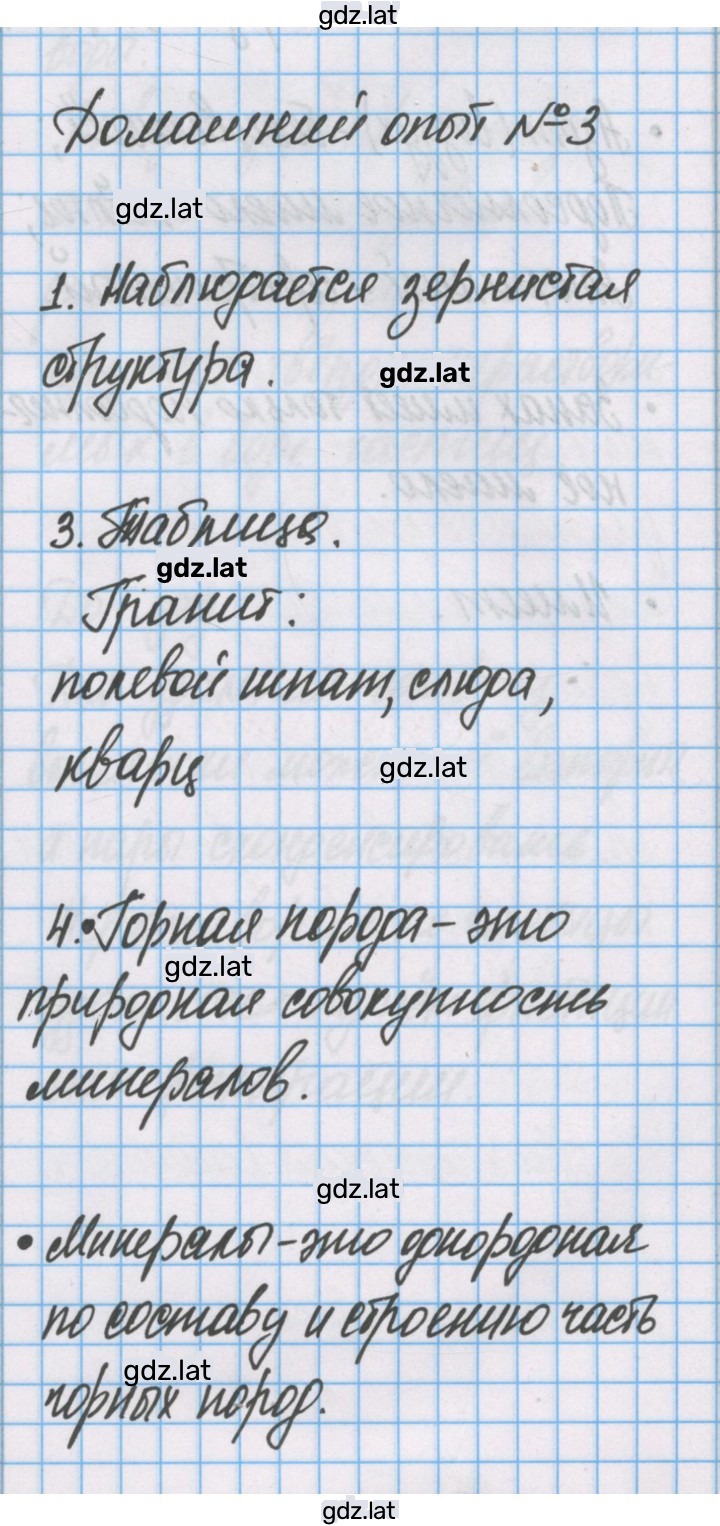 gdz.lat
Домашний опыт №3
gdz.lat
1. Наблюдается зернистая
структура.
gdz.lat
3. Таблица.
gdz.lat
Гранит:
полевой шпат, слюда,
кварц
gdz.lat
4. • Горная порода - это
gdz.lat
природная совокупность
минералов.
gdz.lat
• Минералы - это однородная
по составу и строению часть
gdz.lat
горных пород.
gdz.lat